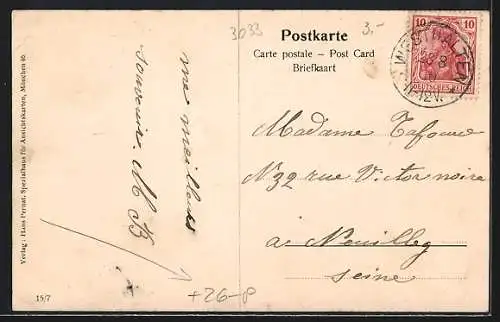 3033
3.-
Postkarte
Carte postale – Post Card
Briefkaart
10 10
WESTHALTEN
8
11-12V.
DEUTSCHES REICH
mes meilleurs
souvenirs. M B
Madame Lafoure
N 32 rue Victor noire
a Neuilleg
Seine
+26-8
Verlag: Hans Pernat, Spezialhaus für Ansichtskarten, München 46
15/7